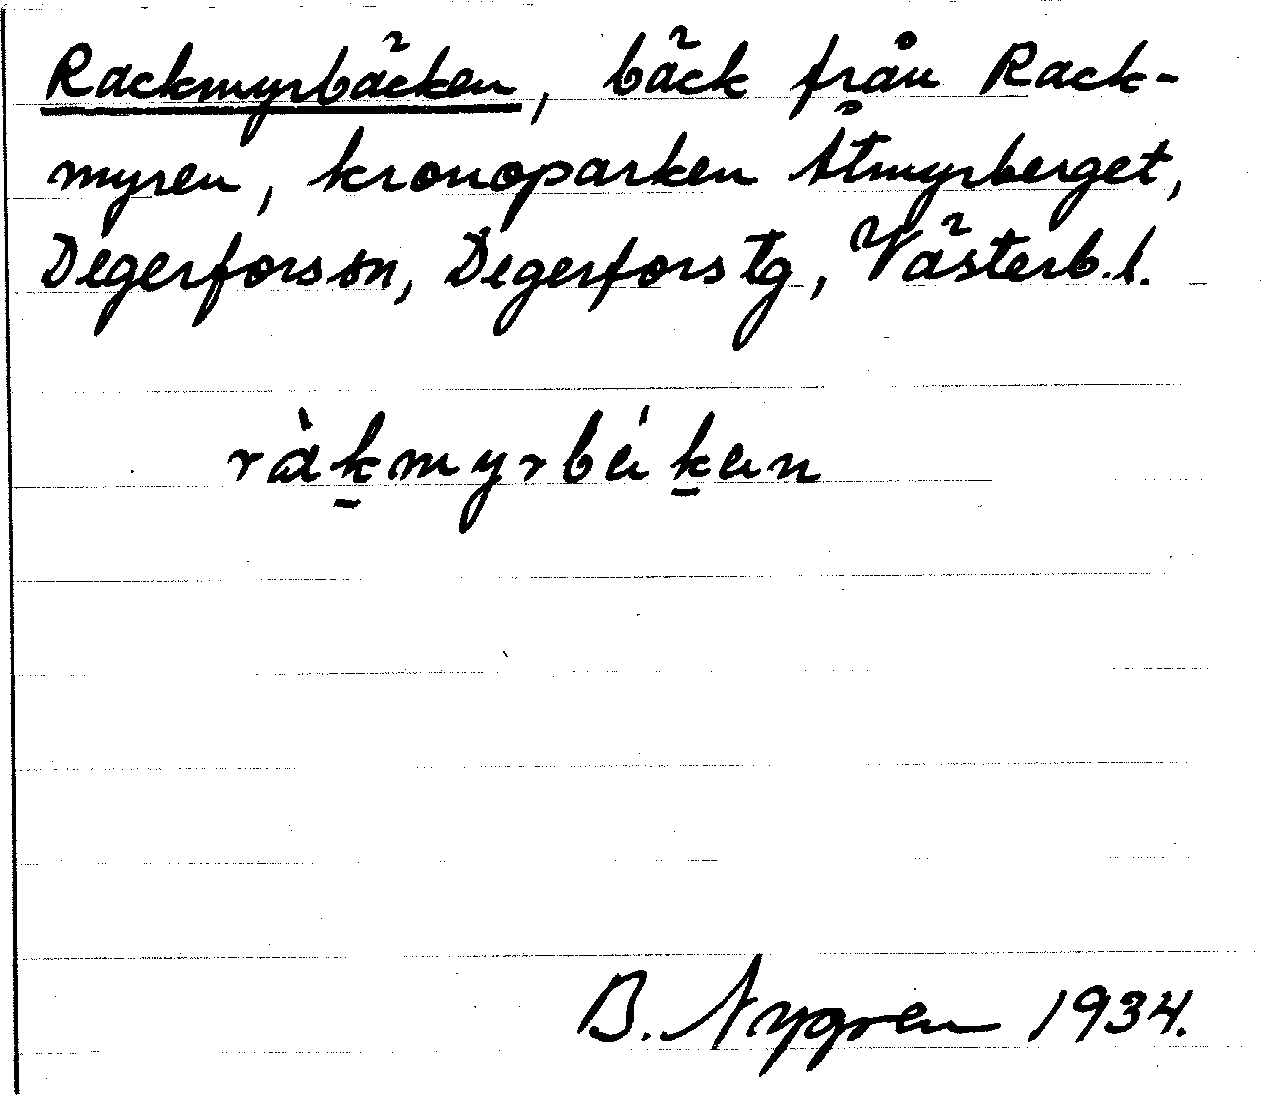 Rackmyrbäcken, bäck från Rack-
myren, kronoparken Åtmyrberget,
Degerfors sn, Degerfors tg, Västerb. l.
ràk̲myrbák̲en
B. Nygren 1934.